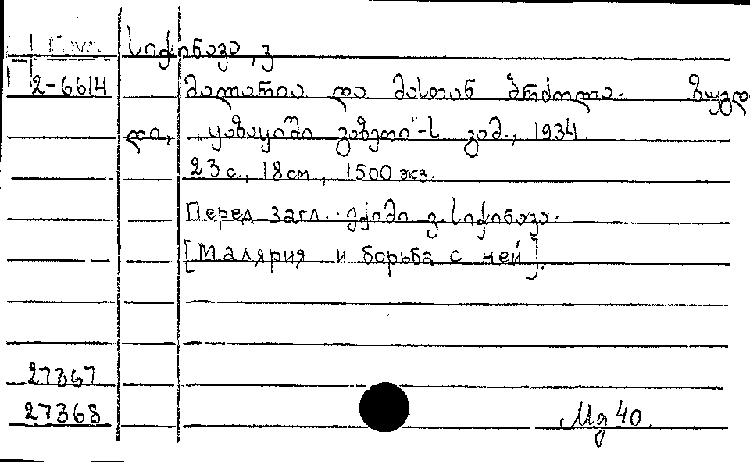 სიჭინავა, ვ
2-6614 მალარია და მასთან ბრძოლა. ზუგდ
დი, „ყაზაყიში გაზეთი"-ს გამ., 1934
23 с., 18 см, 1500 экз.
Перед загл. ექიმი ვ. სიჭინავა.
[Малярия и борьба с ней].
27367
27368 Мд 40.